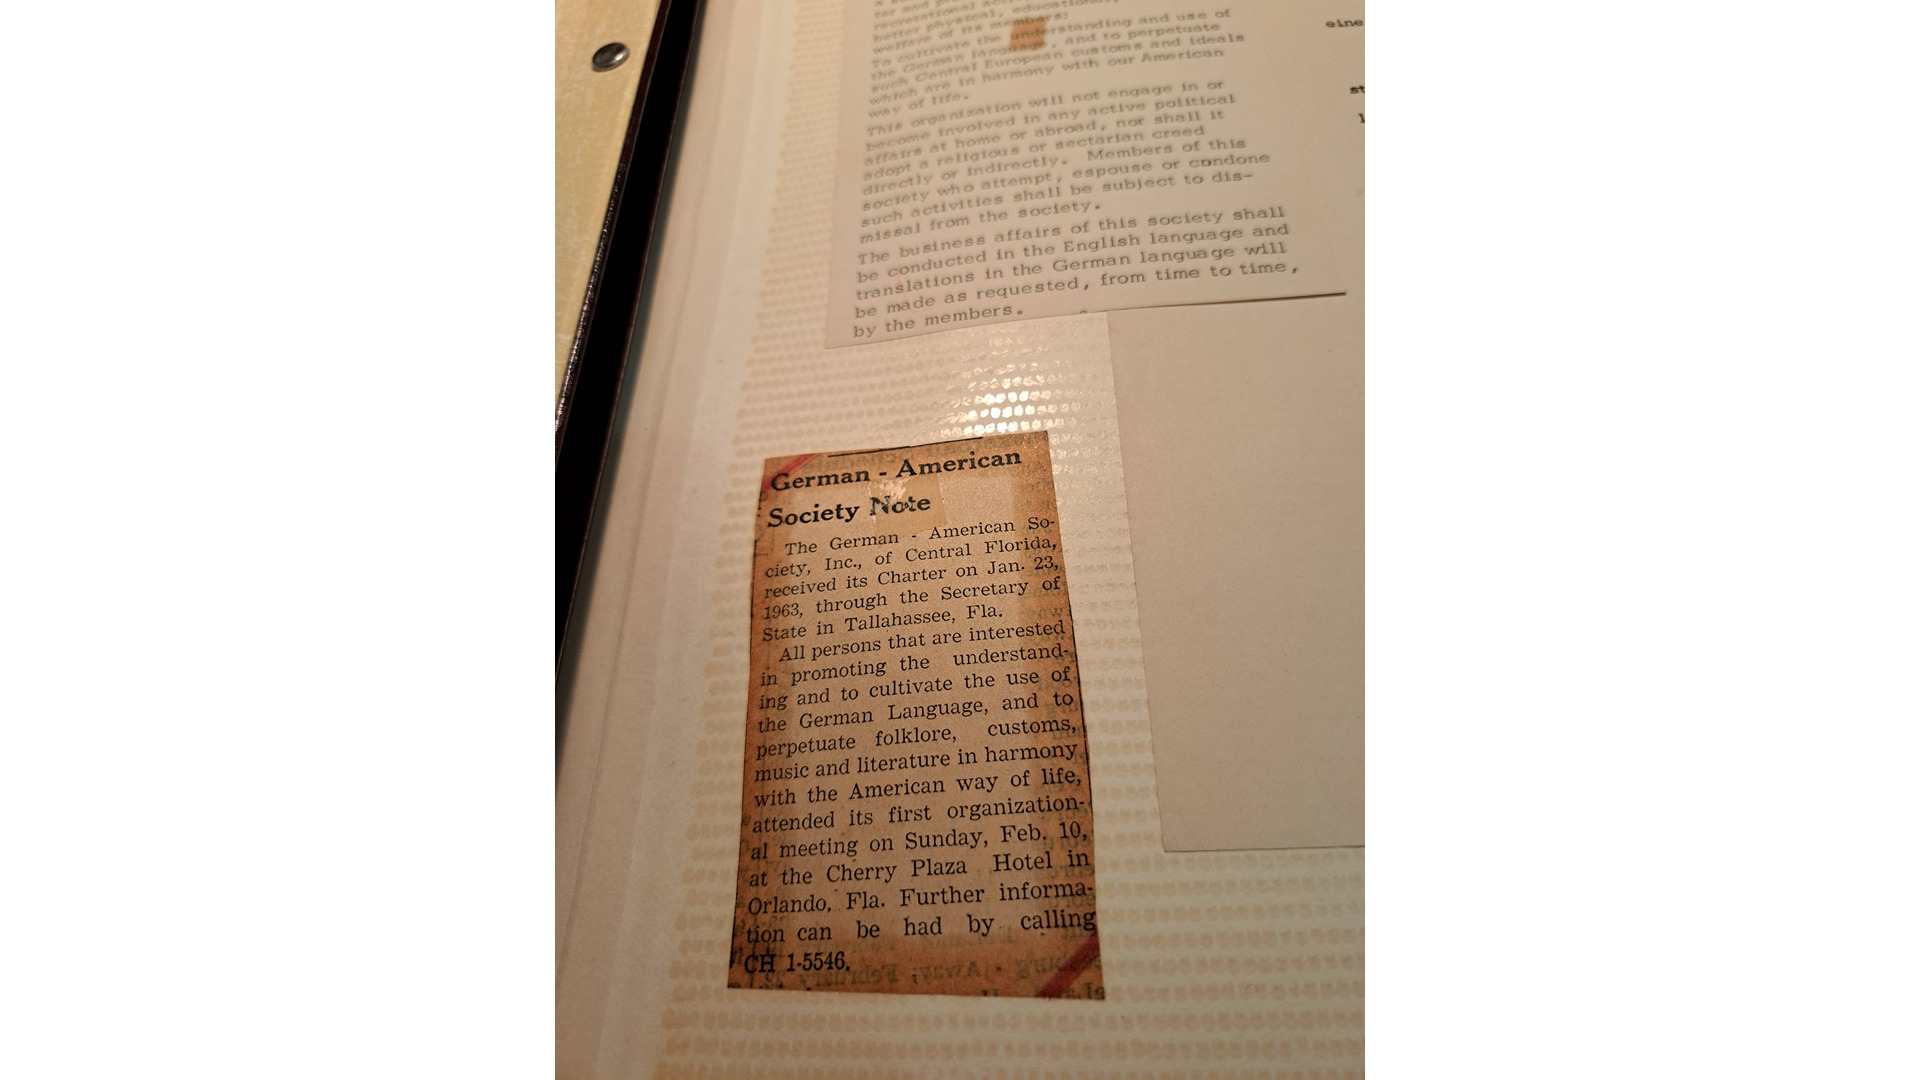 better physical, educational,
welfare of its members:
To cultivate the understanding and use of
the German language, and to perpetuate
such Central European customs and ideals
which are in harmony with our American
way of life.
This organization will not engage in or
become involved in any active political
affairs at home or abroad, nor shall it
adopt a religious or sectarian creed
directly or indirectly. Members of this
society who attempt, espouse or condone
such activities shall be subject to dis-
missal from the society.
The business affairs of this society shall
be conducted in the English language and
translations in the German language will
be made as requested, from time to time,
by the members.
eine
st
German - American
Society Note
The German - American So-
ciety, Inc., of Central Florida,
received its Charter on Jan. 23,
1963, through the Secretary of
State in Tallahassee, Fla.
All persons that are interested
in promoting the understand-
ing and to cultivate the use of
the German Language, and to
perpetuate folklore, customs,
music and literature in harmony
with the American way of life,
attended its first organization-
al meeting on Sunday, Feb. 10,
at the Cherry Plaza Hotel in
Orlando, Fla. Further informa-
tion can be had by calling
CH 1-5546.